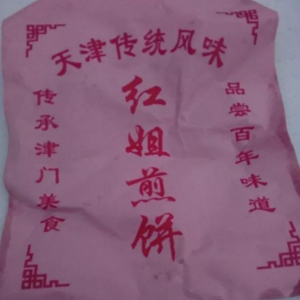 天津传统风味
红姐煎饼
品尝百年味道
传承津门美食